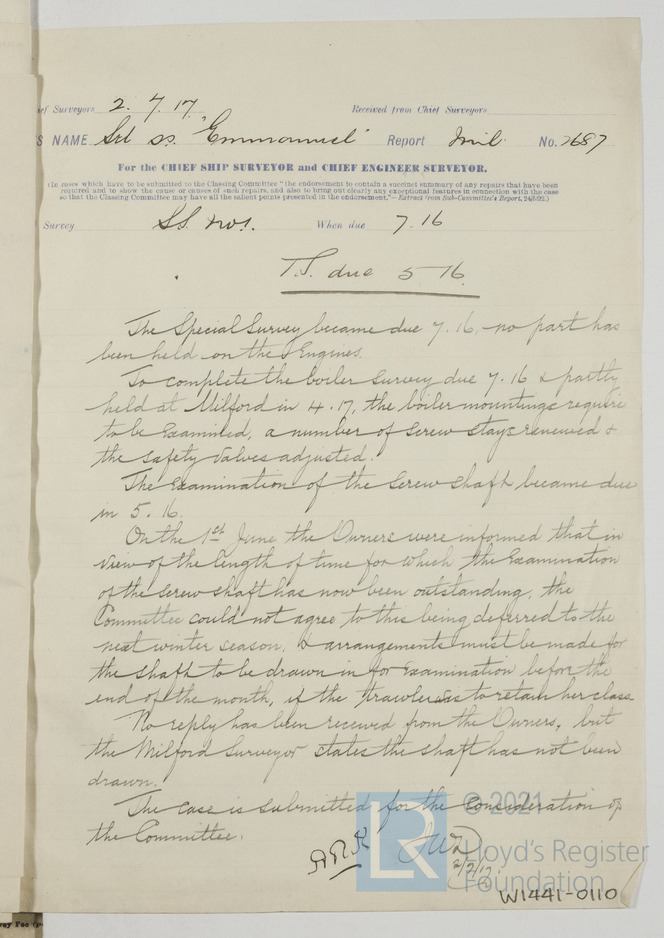 ief Surveyors 2.7.17. Received from Chief Surveyors
S NAME ss. "Emmanuel" Report Mil. No. 2687
For the CHIEF SHIP SURVEYOR and CHIEF ENGINEER SURVEYOR.
(In cases which have to be submitted to the Classing Committee "the endorsement to contain a succinct summary of any repairs that have been
required and to show the cause or causes of such repairs, and also to bring out clearly any exceptional features in connection with the case
so that the Classing Committee may have all the salient points presented in the endorsement."—Extract from Sub-Committee's Report, 24/5/92.)
Survey S.S. No1. When due 7.16
T.S. due 5 16.
The Special Survey became due 7.16, no part has
been held on the Engines.
To complete the boiler survey due 7.16 & partly
held at Milford in 4.17, the boiler mountings require
to be examined, a number of screw stays renewed &
the safety valves adjusted.
The Examination of the screw shaft became due
in 5.16.
On the 1st June the Owners were informed that in
view of the length of time for which the Examination
of the screw shaft has now been outstanding, the
Committee could not agree to this being deferred to the
next winter season, & arrangements must be made for
the shaft to be drawn in for examination before the
end of the month, if the trawler is to retain her class.
No reply has been received from the Owners, but
the Milford Surveyor states the shaft has not been
drawn.
The case is submitted for the consideration of
the Committee.
2/7/17.
© 2021
Lloyd's Register
Foundation
LR
W1441-0110
vey Fee (p